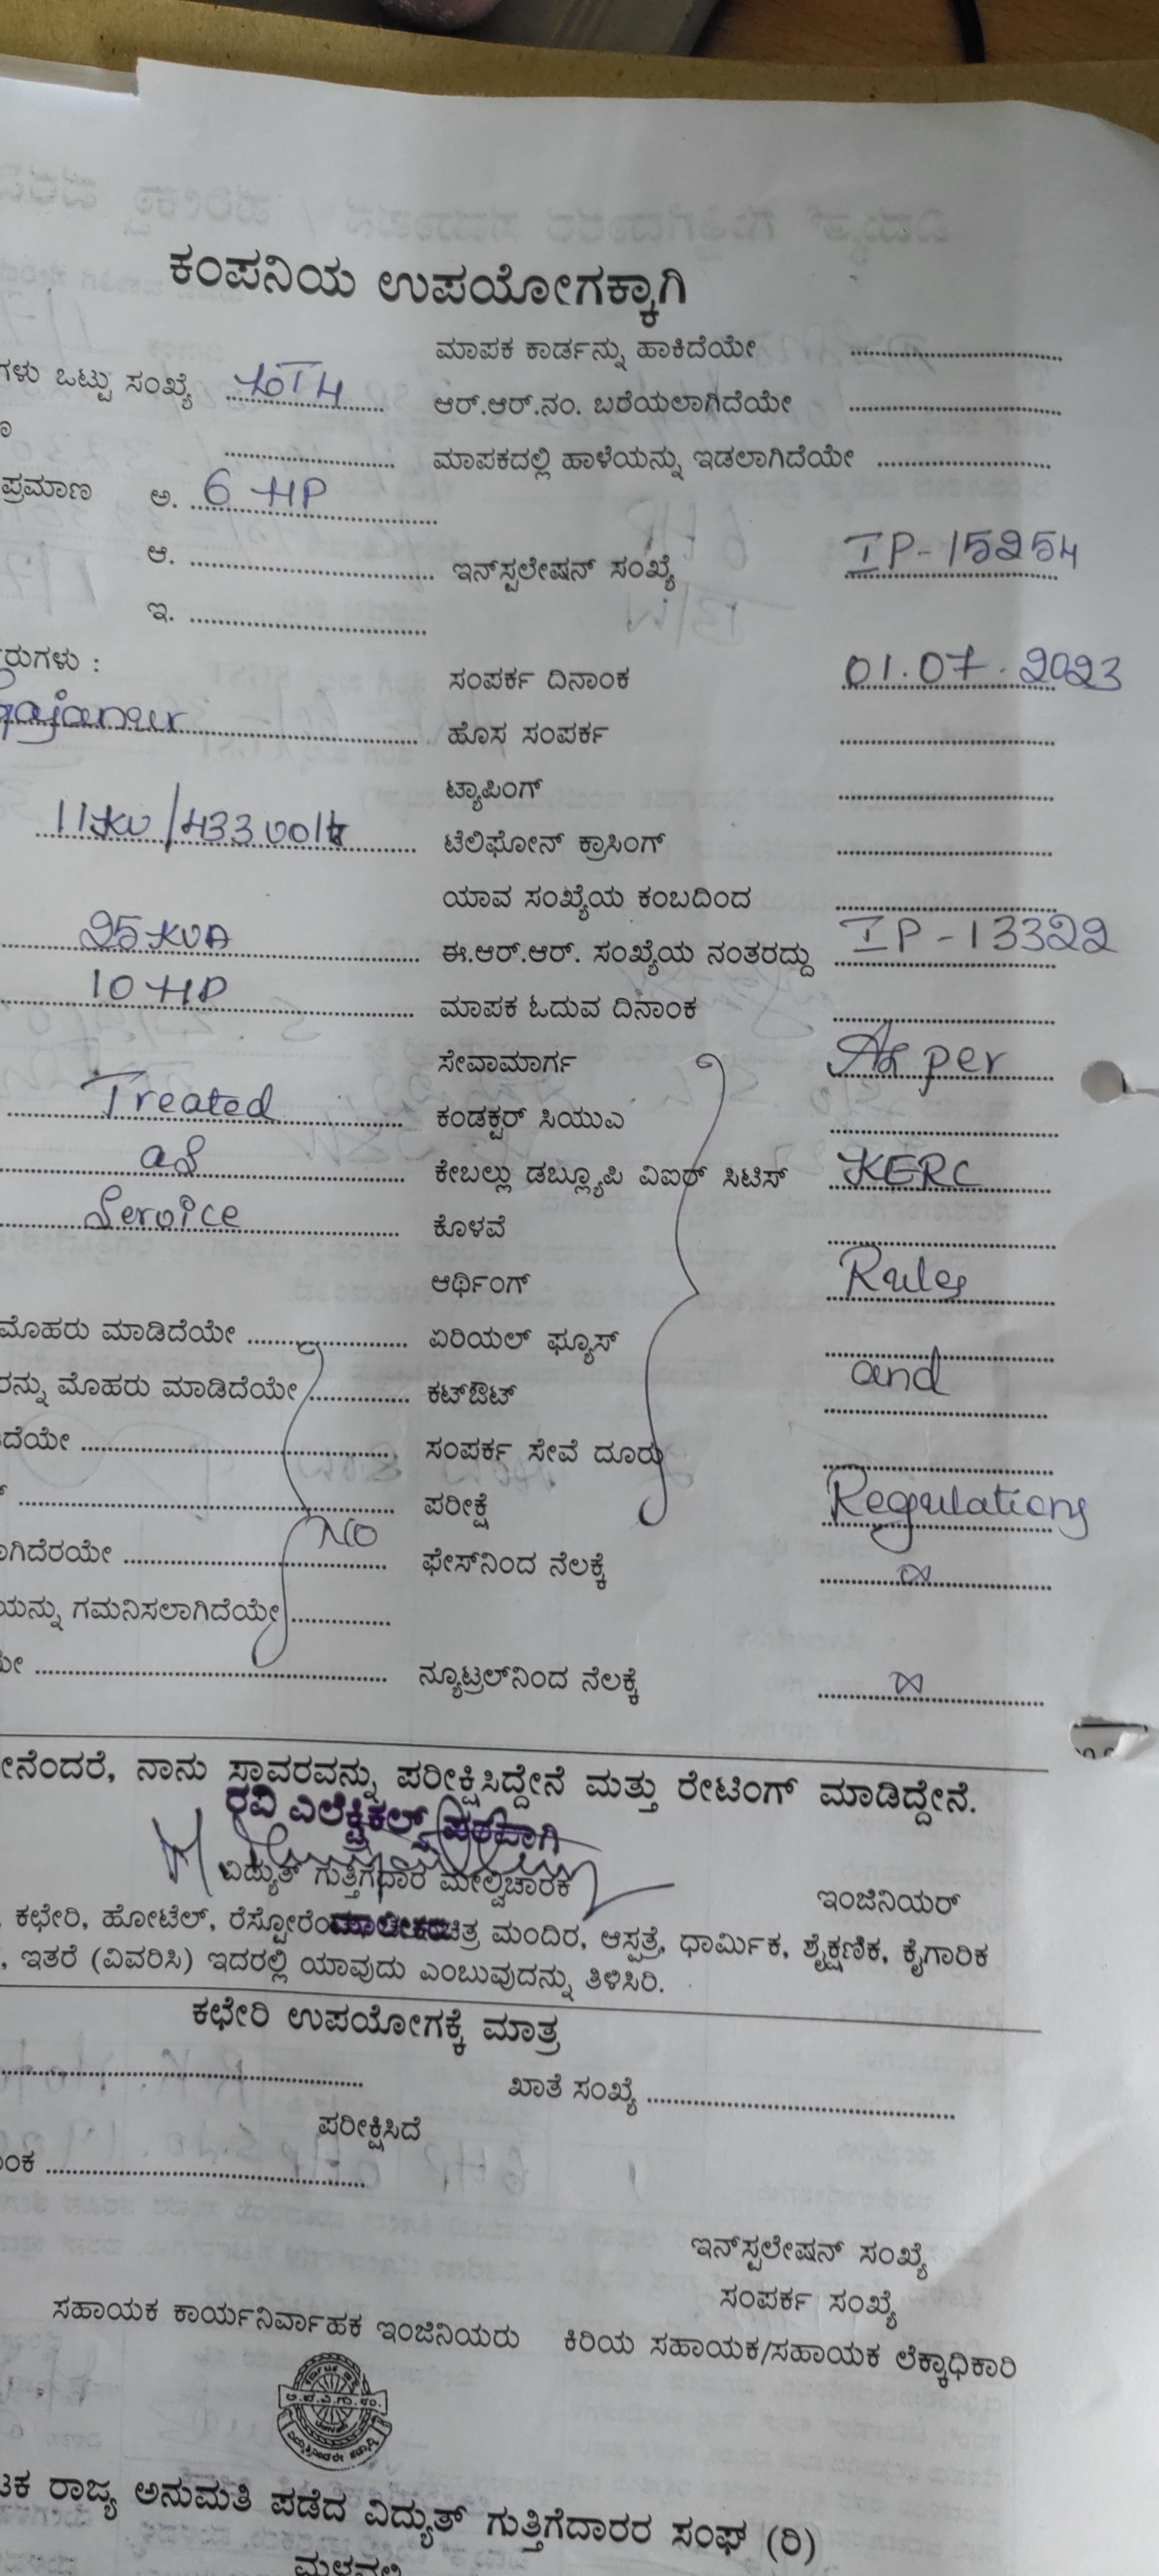 ಕಂಪನಿಯ ಉಪಯೋಗಕ್ಕಾಗಿ
ಮಾಪಕ ಕಾರ್ಡನ್ನು ಹಾಕಿದೆಯೇ
ಗಳು ಒಟ್ಟು ಸಂಖ್ಯೆ
ಆರ್.ಆರ್.ನಂ. ಬರೆಯಲಾಗಿದೆಯೇ
ಮಾಪಕದಲ್ಲಿ ಹಾಳೆಯನ್ನು ಇಡಲಾಗಿದೆಯೇ
ಪ್ರಮಾಣ ಅ. 6 HP
ಆ. ಇನ್‌ಸ್ಟಲೇಷನ್ ಸಂಖ್ಯೆ IP-15254
ಇ.
ರುಗಳು : ಸಂಪರ್ಕ ದಿನಾಂಕ 01.07.2023
ಹೊಸ ಸಂಪರ್ಕ
ಟ್ಯಾಪಿಂಗ್
11KV/433 Volt ಟೆಲಿಫೋನ್ ಕ್ರಾಸಿಂಗ್
ಯಾವ ಸಂಖ್ಯೆಯ ಕಂಬದಿಂದ
25 KVA ಈ.ಆರ್.ಆರ್. ಸಂಖ್ಯೆಯ ನಂತರದ್ದು IP-13322
10 HP ಮಾಪಕ ಓದುವ ದಿನಾಂಕ
ಸೇವಾಮಾರ್ಗ As per
Treated ಕಂಡಕ್ಟರ್ ಸಿಯುಎ
as ಕೇಬಲ್ಲು ಡಬ್ಲ್ಯೂಪಿ ವಿಐಆರ್ ಸಿಟಿಸ್ KERC
Service ಕೊಳವೆ
ಆರ್ಥಿಂಗ್ Rules
ಮೊಹರು ಮಾಡಿದೆಯೇ ಏರಿಯಲ್ ಫ್ಯೂಸ್
and
ರನ್ನು ಮೊಹರು ಮಾಡಿದೆಯೇ ಕಟ್‌ಔಟ್
ದೆಯೇ ಸಂಪರ್ಕ ಸೇವೆ ದೂರು
ಪರೀಕ್ಷೆ Regulations
NO
ಾಗಿದೆರಯೇ ಫೇಸ್‌ನಿಂದ ನೆಲಕ್ಕೆ
ಯನ್ನು ಗಮನಿಸಲಾಗಿದೆಯೇ
ನ್ಯೂಟ್ರಲ್‌ನಿಂದ ನೆಲಕ್ಕೆ
ೇನೆಂದರೆ, ನಾನು ಸ್ಥಾವರವನ್ನು ಪರೀಕ್ಷಿಸಿದ್ದೇನೆ ಮತ್ತು ರೇಟಿಂಗ್ ಮಾಡಿದ್ದೇನೆ.
ರವಿ ಎಲೆಕ್ಟ್ರಿಕಲ್ಸ್ ಪರವಾಗಿ
ವಿದ್ಯುತ್ ಗುತ್ತಿಗೆದಾರ ಮೇಲ್ವಿಚಾರಕ ಇಂಜಿನಿಯರ್
ಕಛೇರಿ, ಹೋಟೆಲ್, ಮಂದಿರ, ಆಸ್ಪತ್ರೆ, ಧಾರ್ಮಿಕ, ಶೈಕ್ಷಣಿಕ, ಕೈಗಾರಿಕ
, ಇತರೆ (ವಿವರಿಸಿ) ಇದರಲ್ಲಿ ಯಾವುದು ಎಂಬುವುದನ್ನು ತಿಳಿಸಿರಿ.
ಕಛೇರಿ ಉಪಯೋಗಕ್ಕೆ ಮಾತ್ರ
ಖಾತೆ ಸಂಖ್ಯೆ
ಪರೀಕ್ಷಿಸಿದೆ
ಇನ್‌ಸ್ಟಲೇಷನ್ ಸಂಖ್ಯೆ
ಸಂಪರ್ಕ ಸಂಖ್ಯೆ
ಸಹಾಯಕ ಕಾರ್ಯನಿರ್ವಾಹಕ ಇಂಜಿನಿಯರು ಕಿರಿಯ ಸಹಾಯಕ/ಸಹಾಯಕ ಲೆಕ್ಕಾಧಿಕಾರಿ
ಟಕ ರಾಜ್ಯ ಅನುಮತಿ ಪಡೆದ ವಿದ್ಯುತ್ ಗುತ್ತಿಗೆದಾರರ ಸಂಘ (ರಿ)